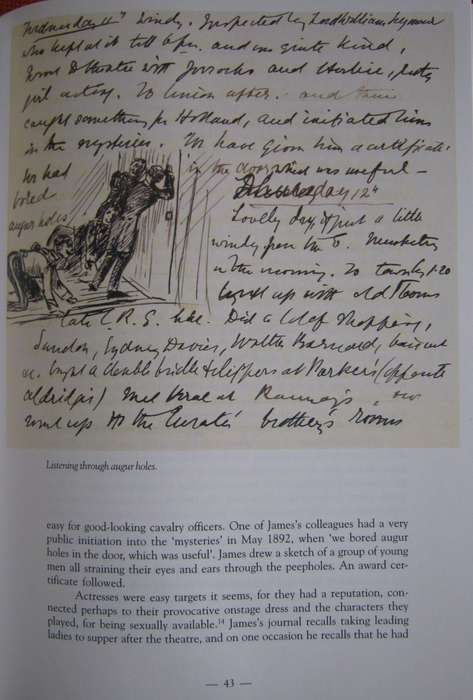 Wednesday 11th Windy. Inspected by Lord William Seymour
who kept at it till 6pm. and was quite kind,
Went to theatre with Jorrocks and
girl acting. To Union after. and then
caught something for Holland, and initiated him
in the mysteries. We have given him a certificate
We had in the door which was useful —
bored
augur holes
Thursday 12th
Lovely day, & just a little
windy from the E. Musketry
in the morning. To town by 1.20
up with old
late C.R.G. like. Did a lot of shopping,
Sandon, Sydney Davies, Walter Barnard, haircut
&c. bought a double bridle & clippers at Parkers (opposite
Aldridges) met at
went up to the Curates' brother's rooms
Listening through augur holes.
easy for good-looking cavalry officers. One of James's colleagues had a very
public initiation into the 'mysteries' in May 1892, when 'we bored augur
holes in the door, which was useful'. James drew a sketch of a group of young
men all straining their eyes and ears through the peepholes. An award cer-
tificate followed.
Actresses were easy targets it seems, for they had a reputation, con-
nected perhaps to their provocative onstage dress and the characters they
played, for being sexually available.14 James's journal recalls taking leading
ladies to supper after the theatre, and on one occasion he recalls that he had
— 43 —